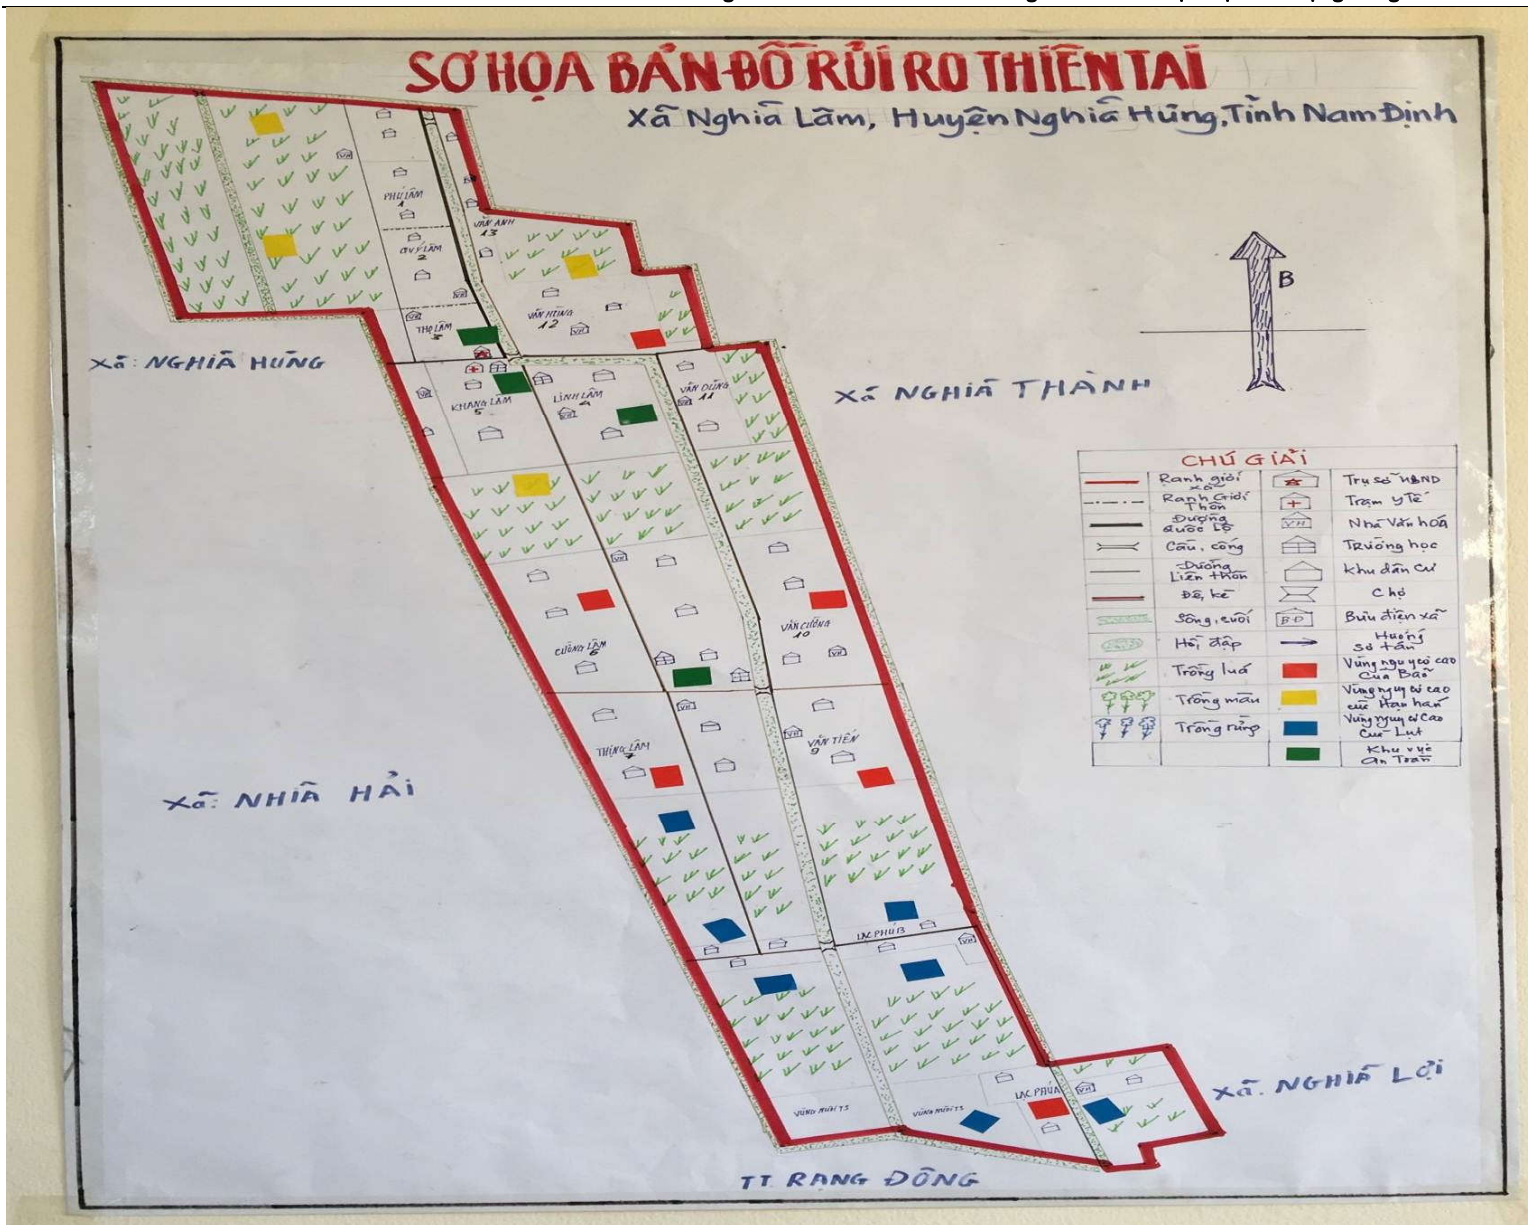 SƠ HỌA BẢN ĐỒ RỦI RO THIÊN TAI
Xã Nghĩa Lâm, Huyện Nghĩa Hưng, Tỉnh Nam Định
VH
PHÚ LÂM
1
QUÝ LÂM
2
VH
VH
THỌ LÂM
3
VÂN ANH
13
VÂN HÙNG
12
VH
B
Xã: NGHĨA HÙNG
Xã NGHĨA THÀNH
KHANG LÂM
5
VH
LĨNH LÂM
4
VH
VÂN DŨNG
11
VH
VH
CƯỜNG LÂM
6
VÂN CƯỜNG
10
VH
VH
THỊNG LÂM
7
VH
VÂN TIẾN
9
Xã: NHIÃ HẢI
LẠC PHÚ B
VH
VÙNG NUÔI TS
VÙNG NUÔI TS
LẠC PHÚ A
VH
Xã. NGHĨA LỢI
TT RẠNG ĐÔNG
CHÚ GIẢI
Ranh giới xã
Trụ sở UBND
Ranh Giới Thôn
Trạm y Tế
Đường Quốc lộ
VH
Nhà Văn hoá
Cầu, cống
Trường học
Đường Liên thôn
Khu dân cư
Đê, kè
Chợ
Sông, suối
BĐ
Bưu điện xã
Hồ, đập
Hướng sơ tán
Trồng lúa
Vùng nguy cơ cao Của Bão
Trồng màu
Vùng nguy cơ cao của Hạn hán
Trồng rừng
Vùng nguy cơ Cao Của Lụt
Khu vực an Toàn